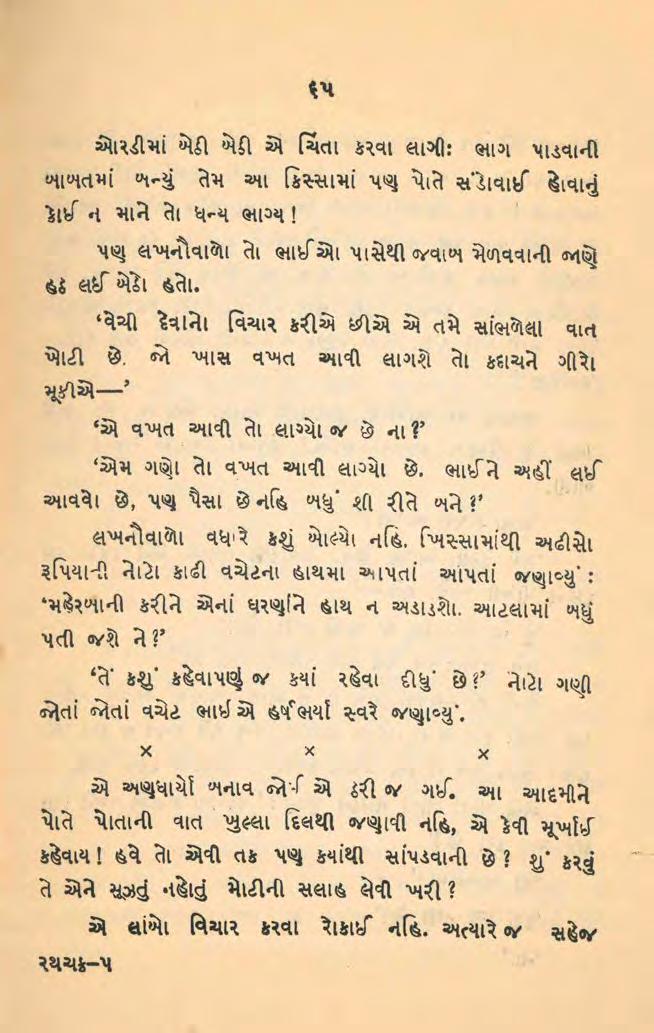 ૬૫
ઓરડીમાં બેઠી બેઠી એ ચિંતા કરવા લાગી: ભાગ પાડવાની
બાબતમાં બન્યું તેમ આ કિસ્સામાં પણ પોતે સંડોવાઈ હોવાનું
કોઈ ન માને તો ધન્ય ભાગ્ય !
પણ લખનૌવાળો તો ભાઈઓ પાસેથી જવાબ મેળવવાની જાણે
હઠ લઈ બેઠો હતો.
‘વેચી દેવાનો વિચાર કરીએ છીએ એ તમે સાંભળેલા વાત
ખોટી છે. જો ખાસ વખત આવી લાગશે તો કદાચને ગીરો
મૂકીએ—’
‘એ વખત આવી તો લાગ્યો જ છે ના ?’
‘એમ ગણો તો વખત આવી લાગ્યો છે. ભાઈને અહીં લઈ
આવવો છે, પણ પૈસા છે નહિ બધું શી રીતે બને ?’
લખનૌવાળો વધારે કશું બોલ્યો નહિ. ખિસ્સામાંથી અઢીસો
રૂપિયાની નોટો કાઢી વચેટના હાથમા આપતાં આપતાં જણાવ્યું :
‘મહેરબાની કરીને એનાં ઘરણાંને હાથ ન અડાડશો. આટલામાં બધું
પતી જશે ને ?’
‘તેં કશું કહેવાપણું જ ક્યાં રહેવા દીધું છે ?’ નોટો ગણી
જોતાં જોતાં વચેટ ભાઈએ હર્ષભર્યા સ્વરે જણાવ્યું.
× × ×
એ અણધાર્યો બનાવ જોઈ એ ઠરી જ ગઈ. આ આદમીને
પોતે પોતાની વાત ખુલ્લા દિલથી જણાવી નહિ, એ કેવી મૂર્ખાઈ
કહેવાય ! હવે તો એવી તક પણ ક્યાંથી સાંપડવાની છે ? શું કરવું
તે એને સૂઝતું નહોતું મોટીની સલાહ લેવી ખરી ?
એ લાંબો વિચાર કરવા રોકાઈ નહિ. અત્યારે જ સહેજ
રથચક્ર–૫